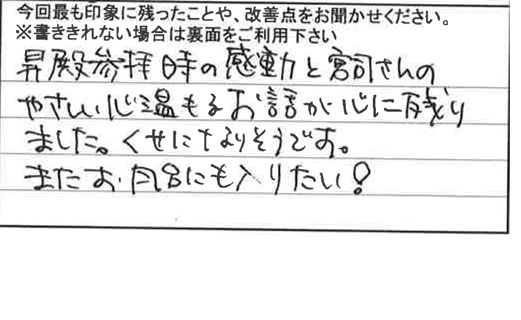 今回最も印象に残ったことや、改善点をお聞かせください。
※書ききれない場合は裏面をご利用下さい
昇殿参拝時の感動と宮司さんの
やさしい心温もるお話が心に残り
ました。くせになりそうです。
またお風呂にも入りたい!